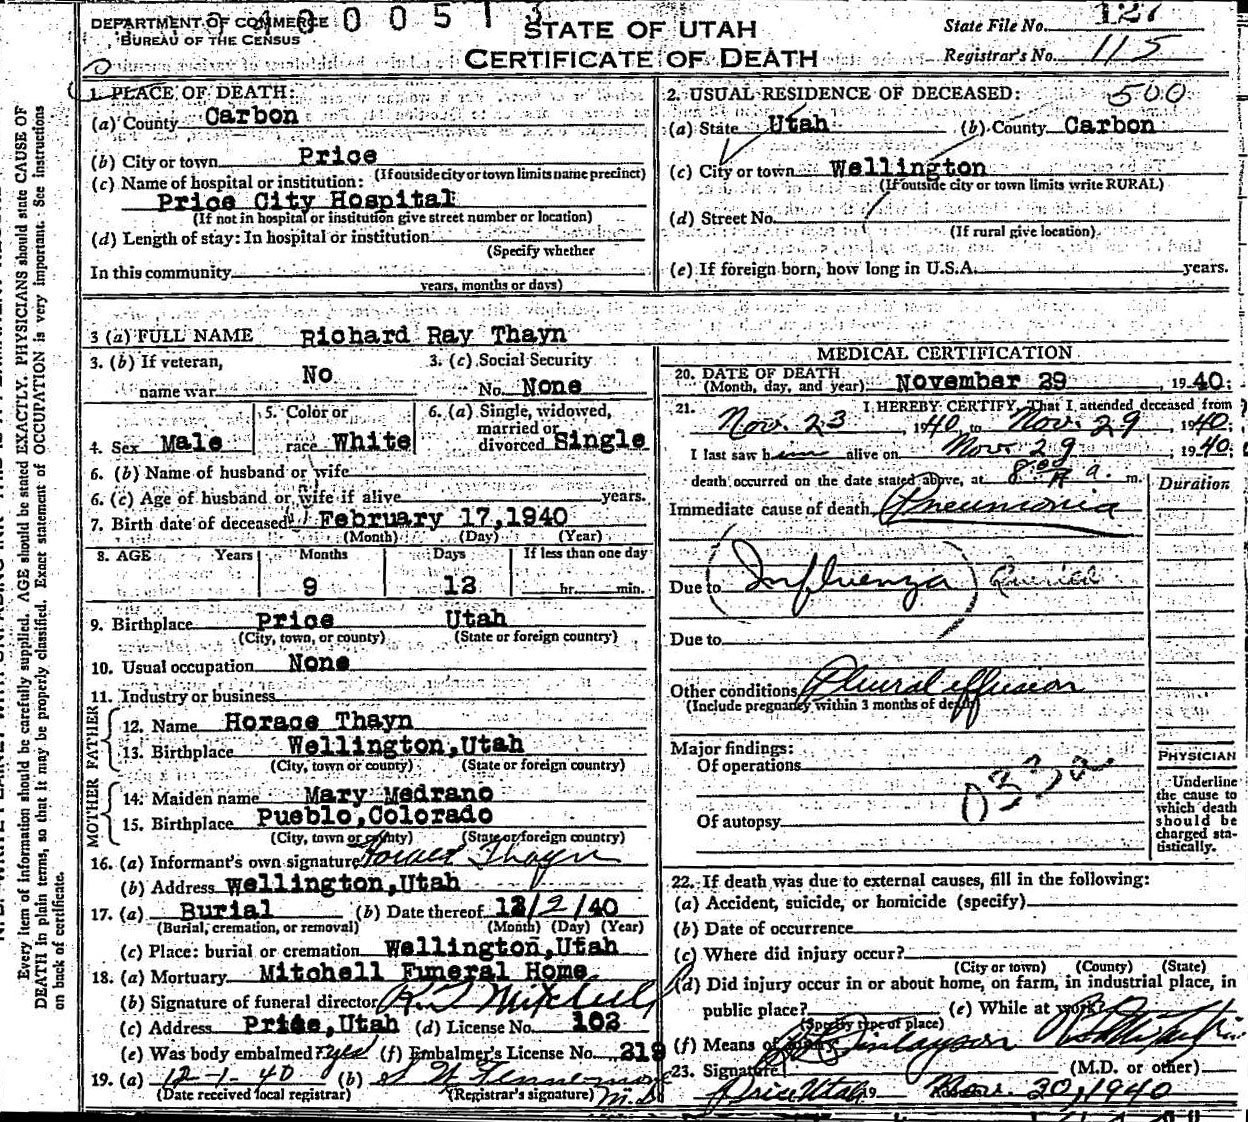 DEPARTMENT OF COMMERCE
BUREAU OF THE CENSUS
STATE OF UTAH
CERTIFICATE OF DEATH
State File No. 127
Registrar's No. 115
1. PLACE OF DEATH:
(a) County Carbon
(b) City or town Price
(If outside city or town limits name precinct)
(c) Name of hospital or institution:
Price City Hospital
(If not in hospital or institution give street number or location)
(d) Length of stay: In hospital or institution
(Specify whether
In this community
years, months or days)
2. USUAL RESIDENCE OF DECEASED: 500
(a) State Utah (b) County Carbon
(c) City or town Wellington
(If outside city or town limits write RURAL)
(d) Street No.
(If rural give location)
(e) If foreign born, how long in U.S.A. years.
3 (a) FULL NAME Richard Ray Thayn
3. (b) If veteran,
name war No
3. (c) Social Security
No. None
4. Sex Male
5. Color or
race White
6. (a) Single, widowed,
married or
divorced Single
6. (b) Name of husband or wife
6. (c) Age of husband or wife if alive years.
7. Birth date of deceased February 17, 1940
(Month) (Day) (Year)
8. AGE Years Months Days If less than one day
9 12 hr. min.
9. Birthplace Price Utah
(City, town, or county) (State or foreign country)
10. Usual occupation None
11. Industry or business
FATHER
12. Name Horace Thayn
13. Birthplace Wellington, Utah
(City, town or county) (State or foreign country)
MOTHER
14. Maiden name Mary Medrano
15. Birthplace Pueblo, Colorado
(City, town or county) (State or foreign country)
16. (a) Informant's own signature Horace Thayn
(b) Address Wellington, Utah
17. (a) Burial (b) Date thereof 12/2/40
(Burial, cremation, or removal) (Month) (Day) (Year)
(c) Place: burial or cremation Wellington, Utah
18. (a) Mortuary Mitchell Funeral Home
(b) Signature of funeral director Mitchell
(c) Address Price, Utah (d) License No. 102
(e) Was body embalmed? yes (f) Embalmer's License No. 219
19. (a) 12-1-40 (b)
(Date received local registrar) (Registrar's signature) M.D.
MEDICAL CERTIFICATION
20. DATE OF DEATH
(Month, day, and year) November 29, 1940;
21. I HEREBY CERTIFY, That I attended deceased from
Nov. 23 1940, to Nov. 29, 1940;
I last saw him alive on Nov. 29, 1940;
death occurred on the date stated above, at 8:00 a. m.
Duration
Immediate cause of death Pneumonia
Due to (Influenza)
Due to
Other conditions Plural effusion
(Include pregnancy within 3 months of death)
Major findings:
Of operations
Of autopsy
PHYSICIAN
Underline
the cause to
which death
should be
charged sta-
tistically.
22. If death was due to external causes, fill in the following:
(a) Accident, suicide, or homicide (specify)
(b) Date of occurrence
(c) Where did injury occur?
(City or town) (County) (State)
(d) Did injury occur in or about home, on farm, in industrial place, in
public place? (e) While at work?
(Specify type of place)
(f) Means of
23. Signature (M.D. or other)
Price Utah Nov. 30, 1940
Every item of information should be carefully supplied. AGE should be stated EXACTLY. PHYSICIANS should state CAUSE OF
DEATH in plain terms, so that it may be properly classified. Exact statement of OCCUPATION is very important. See instructions
on back of certificate.